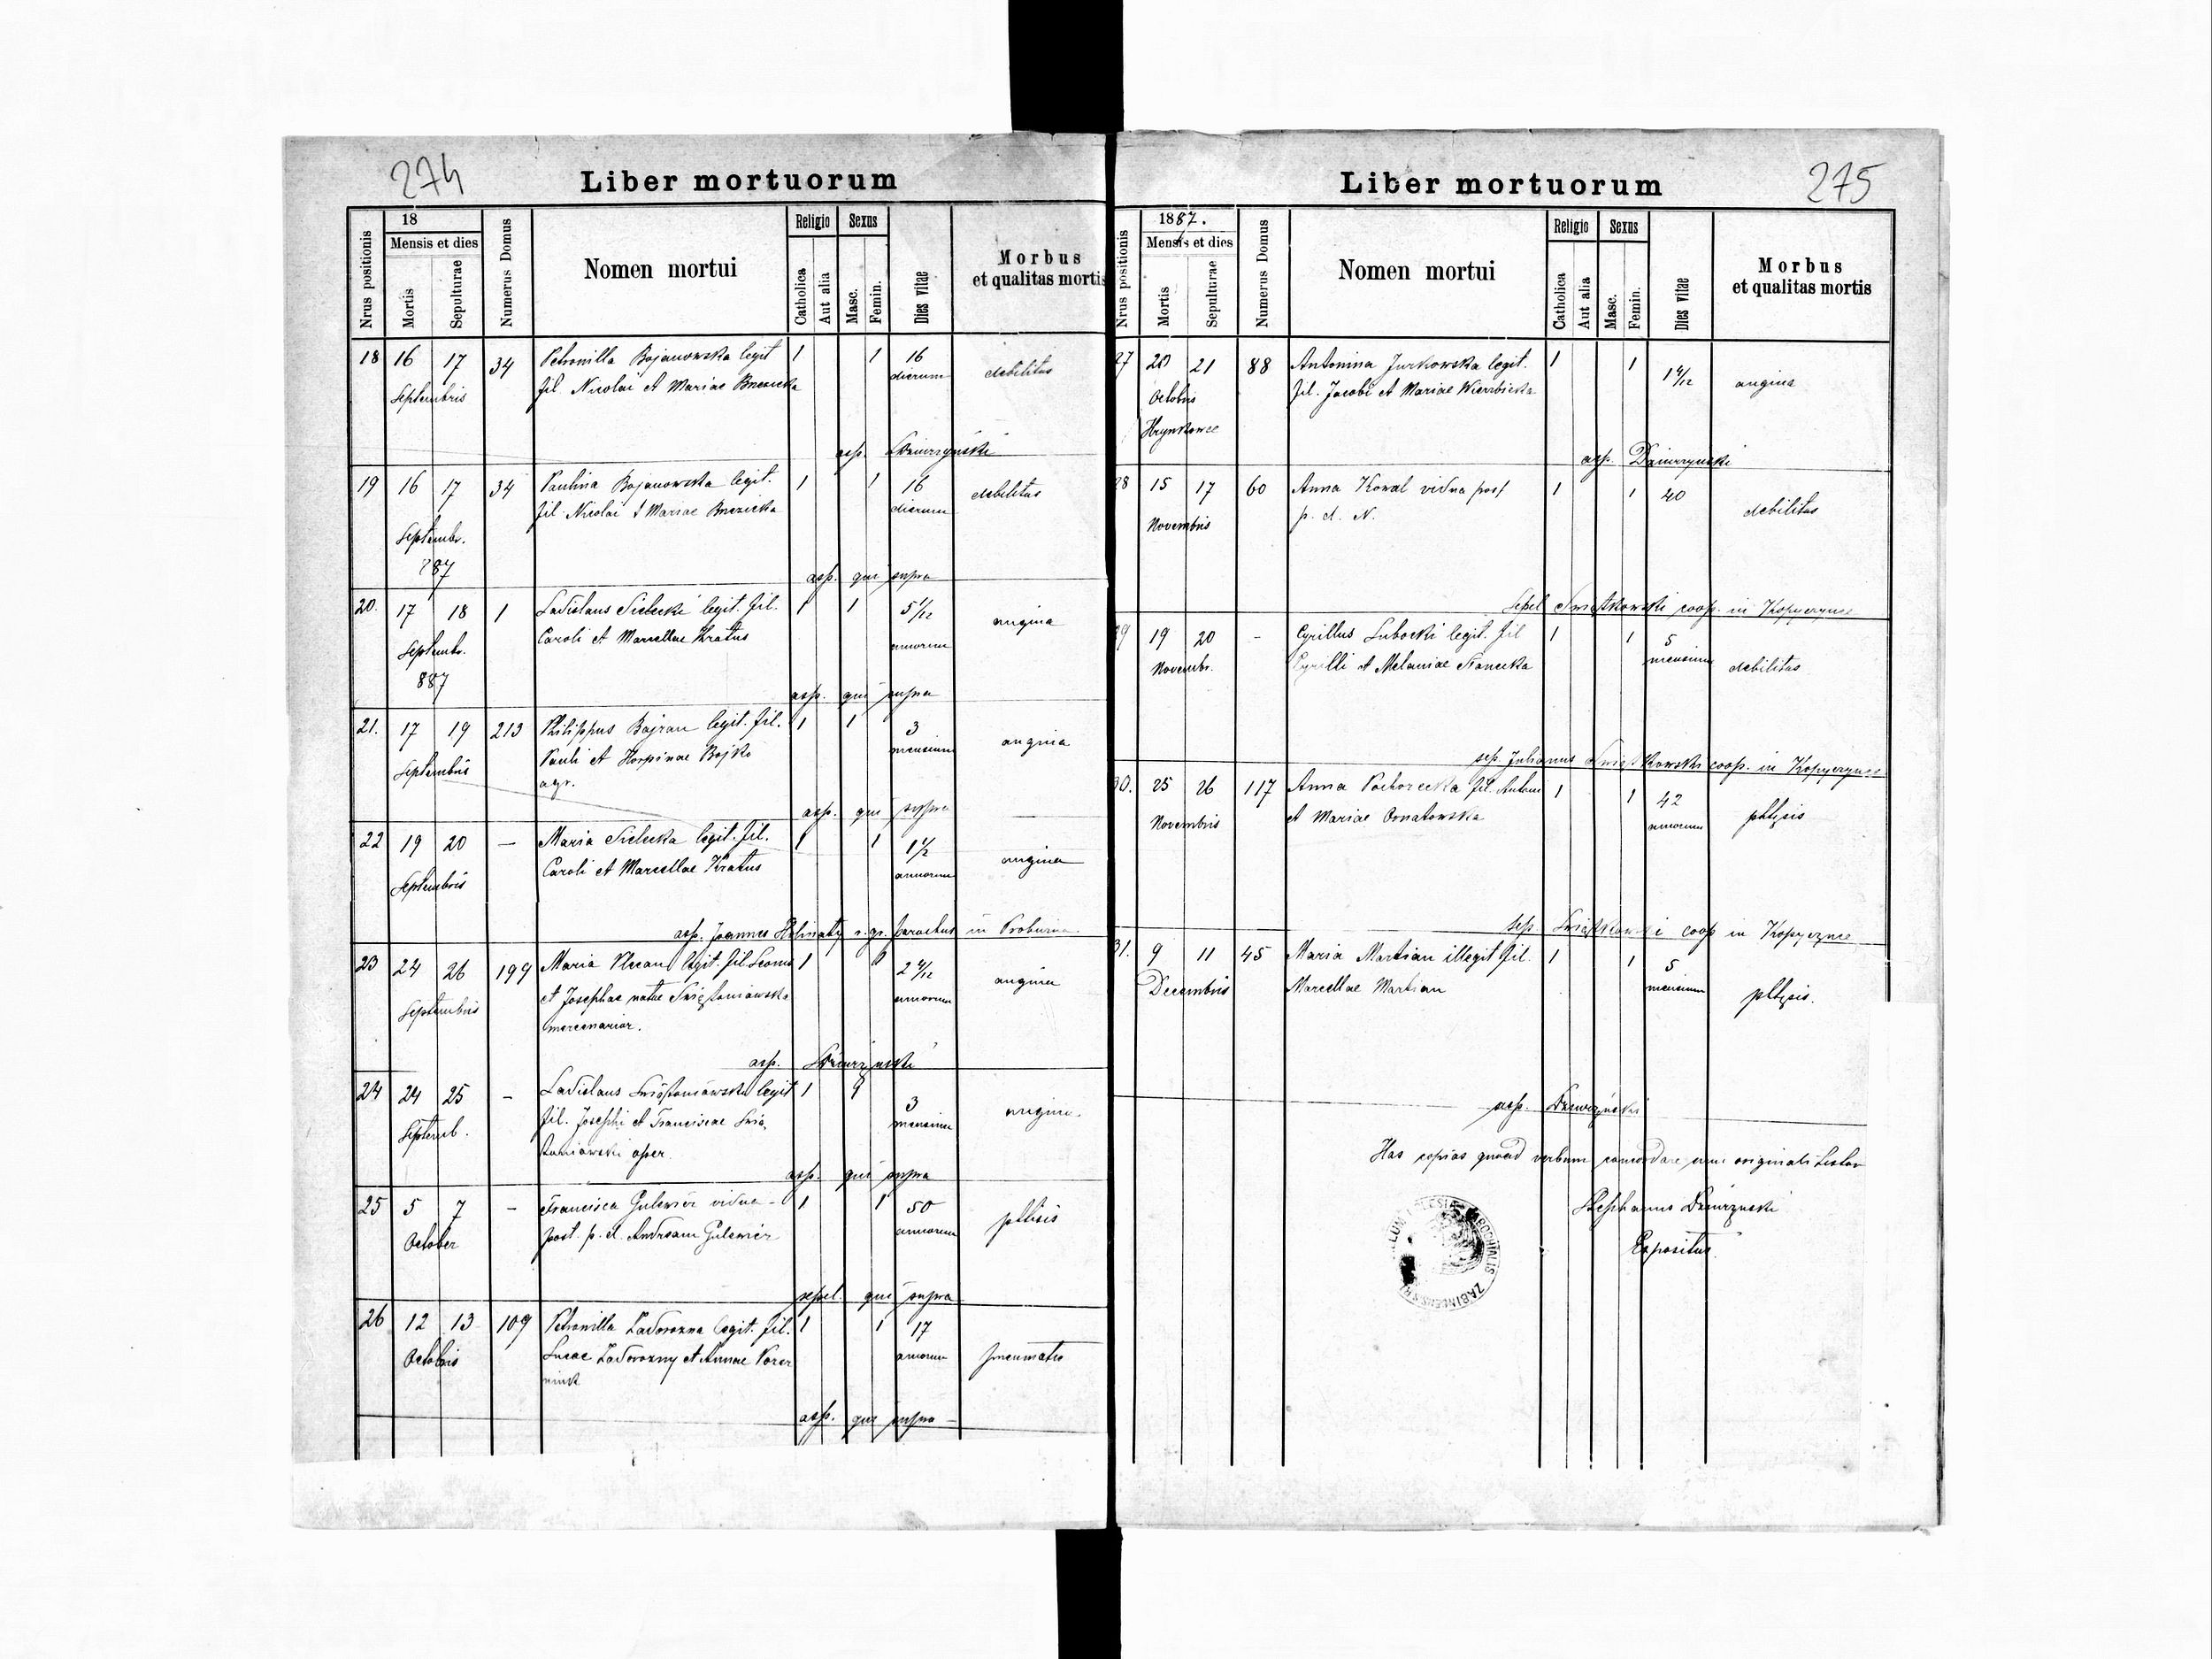 274
Liber mortuorum
Nrus positionis
18
Mensis et dies
Mortis
Sepulturae
Numerus Domus
Nomen mortui
Religio
Catholica
Aut alia
Sexus
Masc.
Femin.
Dies vitae
Morbus
et qualitas mortis
18 16 17 34 Petronilla Bojanowska legit 1 1 16 debilitas
Septembris fil. Nicolai et Mariae dierum
asp. Dziurzyński
19 16 17 34 Paulina Bojanowska legit. 1 1 16 debilitas
fil. Nicolai et Mariae dierum
Septembr.
887
asp. qui supra
20. 17 18 1 Ladislaus Sielecki legit. fil. 1 1 5 1/12 angina
Septembr. Caroli et Marcellae Kratus annorum
887
asp. qui supra
21. 17 19 213 Philippus Bajran legit. fil. 1 1 3 angina
Septembris Pauli et Horpinae Bojko mensium
agr.
asp. qui supra
22 19 20 — Maria Sielecka legit. fil. 1 1 1 1/2 angina
Septembris Caroli et Marcellae Kratus annorum
asp. Joannes r. gr. parochus in Probużna
23 24 26 199 Maria legit. fil. 1 1 2 angina
Septembris et Josephae natae annorum
mercenarior.
asp. Dziurzyński
24 24 25 — Ladislaus legit 1 1 3 angina.
Septemb. fil. Josephi et Franciscae mensium
oper.
asp. qui supra
25 5 7 — Francisca Gulewicz vidua 1 1 50 phtisis
October post. p. d. Andream Gulewicz annorum
sepel. qui supra
26 12 13 109 Petronilla Zadorozna legit. fil. 1 1 17
Octobris Lucae Zadorozny et Annae annorum
asp. qui supra
Liber mortuorum
275
Nrus positionis
1887.
Mensis et dies
Mortis
Sepulturae
Numerus Domus
Nomen mortui
Religio
Catholica
Aut alia
Sexus
Masc.
Femin.
Dies vitae
Morbus
et qualitas mortis
27 20 21 88 Antonina Jurkowska legit. 1 1 angina
Octobris fil. Jacobi et Mariae Wierzbicka
Hrynkowce
asp. Dziurzyński
28 15 17 60 Anna Kowal vidua post 1 1 40 debilitas
Novembris p. d. N.
Sepel Świątkowski coop. in Kopyczyńce
29 19 20 - Cyrillus Lubocki legit. fil 1 1 5 debilitas
Novembr. Cyrilli et Melaniae mensium
sep. Julianus Świątkowski coop. in Kopyczyńce
30. 25 26 117 Anna fil. Antoni 1 1 42 phtysis
Novembris et Mariae Ornatowska annorum
sep. Świątkowski coop in Kopyczynce
31. 9 11 45 Maria Martian illegit fil. 1 1 5 phtysis.
Decembris Marcellae Martian mensium
asp. Dziurzyński
Has copias quoad verbum concordare cum originali testor
Stephanus Dziurzyński
Expositus